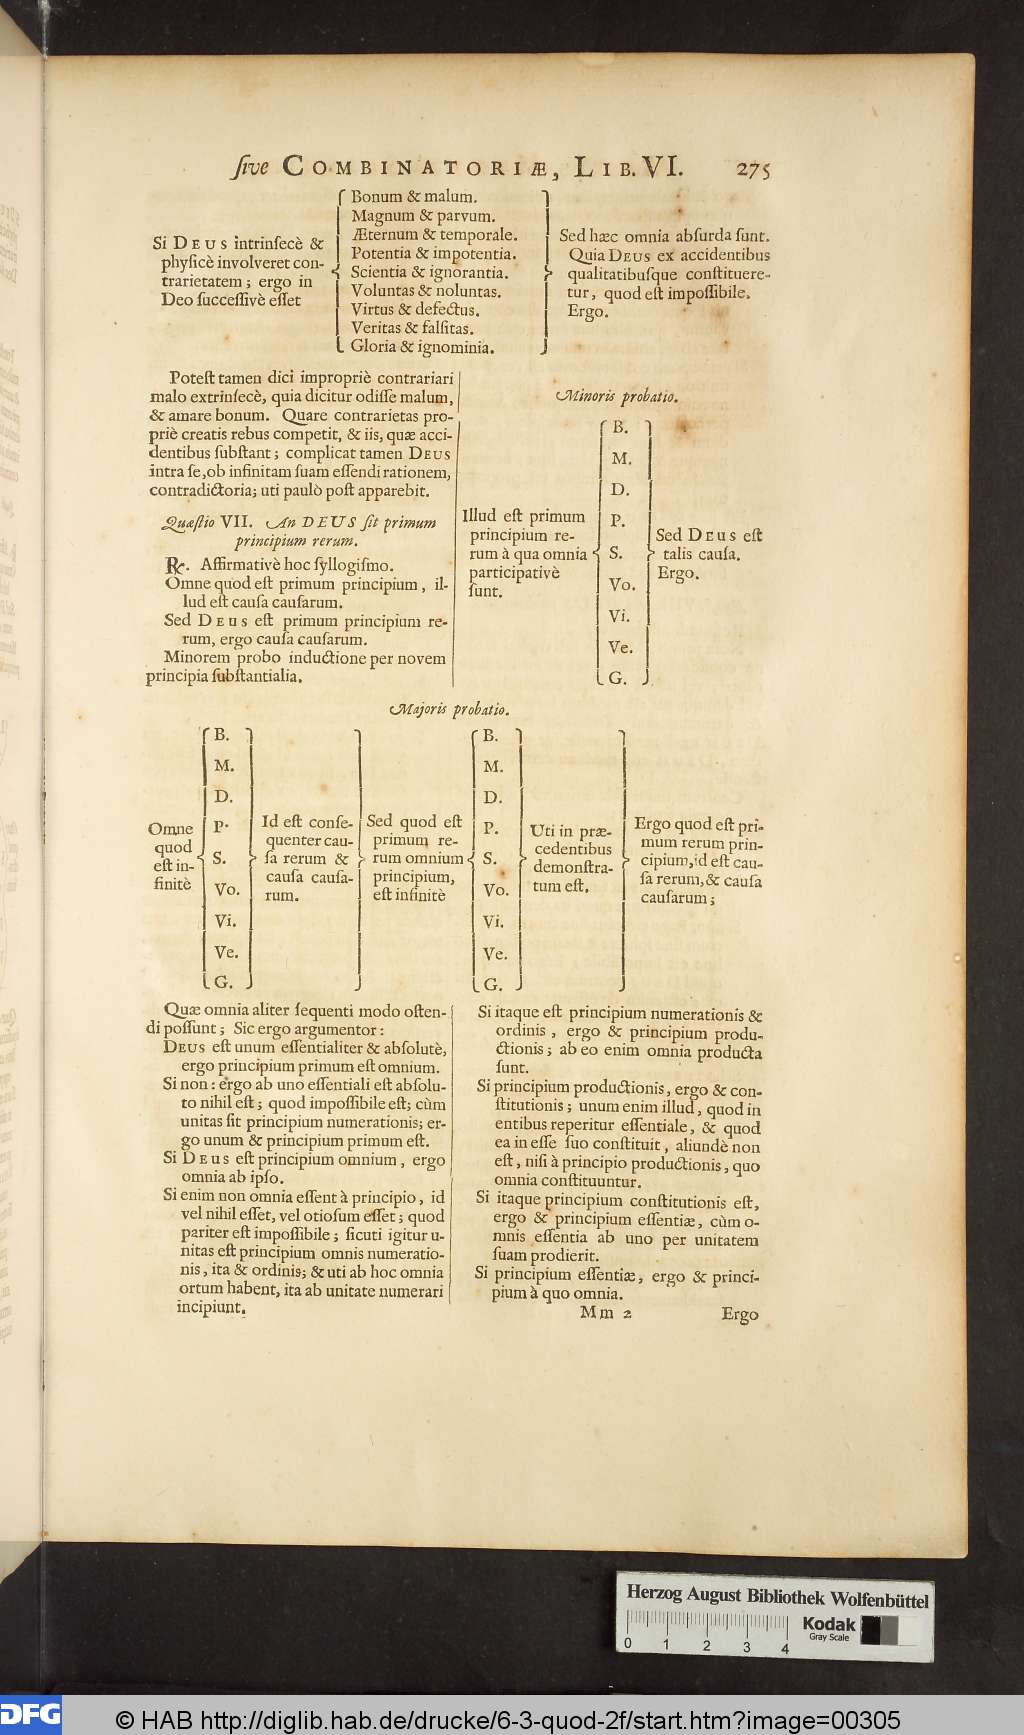 ſive COMBINATORIÆ, LIB. VI. 275
Si DEUS intrinſecè &
phyſicè involveret con-
trarietatem; ergo in
Deo ſucceſſivè eſſet
Bonum & malum.
Magnum & parvum.
Æternum & temporale.
Potentia & impotentia.
Scientia & ignorantia.
Voluntas & noluntas.
Virtus & defectus.
Veritas & falſitas.
Gloria & ignominia.
Sed hæc omnia abſurda ſunt.
Quia DEUS ex accidentibus
qualitatibuſque conſtituere-
tur, quod eſt impoſſibile.
Ergo.
Poteſt tamen dici impropriè contrariari
malo extrinſecè, quia dicitur odiſſe malum,
& amare bonum. Quare contrarietas pro-
priè creatis rebus competit, & iis, quæ acci-
dentibus ſubſtant; complicat tamen DEUS
intra ſe, ob infinitam ſuam eſſendi rationem,
contradictoria; uti paulò poſt apparebit.
Quæſtio VII. An DEUS ſit primum
principium rerum.
℞. Affirmativè hoc ſyllogiſmo.
Omne quod eſt primum principium, il-
lud eſt cauſa cauſarum.
Sed DEUS eſt primum principium re-
rum, ergo cauſa cauſarum.
Minorem probo inductione per novem
principia ſubſtantialia.
Minoris probatio.
Illud eſt primum
principium re-
rum à qua omnia
participativè
ſunt.
B.
M.
D.
P.
S.
Vo.
Vi.
Ve.
G.
Sed DEUS eſt
talis cauſa.
Ergo.
Majoris probatio.
Omne
quod
eſt in-
finitè
B.
M.
D.
P.
S.
Vo.
Vi.
Ve.
G.
Id eſt conſe-
quenter cau-
ſa rerum &
cauſa cauſa-
rum.
Sed quod eſt
primum re-
rum omnium
principium,
eſt infinitè
B.
M.
D.
P.
S.
Vo.
Vi.
Ve.
G.
Uti in præ-
cedentibus
demonſtra-
tum eſt.
Ergo quod eſt pri-
mum rerum prin-
cipium, id eſt cau-
ſa rerum, & cauſa
cauſarum;
Quæ omnia aliter ſequenti modo oſten-
di poſſunt; Sic ergo argumentor:
DEUS eſt unum eſſentialiter & abſolutè,
ergo principium primum eſt omnium.
Si non: ergo ab uno eſſentiali eſt abſolu-
to nihil eſt; quod impoſſibile eſt; cùm
unitas ſit principium numerationis; er-
go unum & principium primum eſt.
Si DEUS eſt principium omnium, ergo
omnia ab ipſo.
Si enim non omnia eſſent à principio, id
vel nihil eſſet, vel otioſum eſſet; quod
pariter eſt impoſſibile; ſicuti igitur u-
nitas eſt principium omnis numeratio-
nis, ita & ordinis; & uti ab hoc omnia
ortum habent, ita ab unitate numerari
incipiunt.
Si itaque eſt principium numerationis &
ordinis, ergo & principium produ-
ctionis; ab eo enim omnia producta
ſunt.
Si principium productionis, ergo & con-
ſtitutionis; unum enim illud, quod in
entibus reperitur eſſentiale, & quod
ea in eſſe ſuo conſtituit, aliundè non
eſt, niſi à principio productionis, quo
omnia conſtituuntur.
Si itaque principium conſtitutionis eſt,
ergo & principium eſſentiæ, cùm o-
mnis eſſentia ab uno per unitatem
ſuam prodierit.
Si principium eſſentiæ, ergo & princi-
pium à quo omnia.
Mm 2 Ergo
Herzog August Bibliothek Wolfenbüttel
Kodak
Gray Scale
0 1 2 3 4
DFG
© HAB http://diglib.hab.de/drucke/6-3-quod-2f/start.htm?image=00305